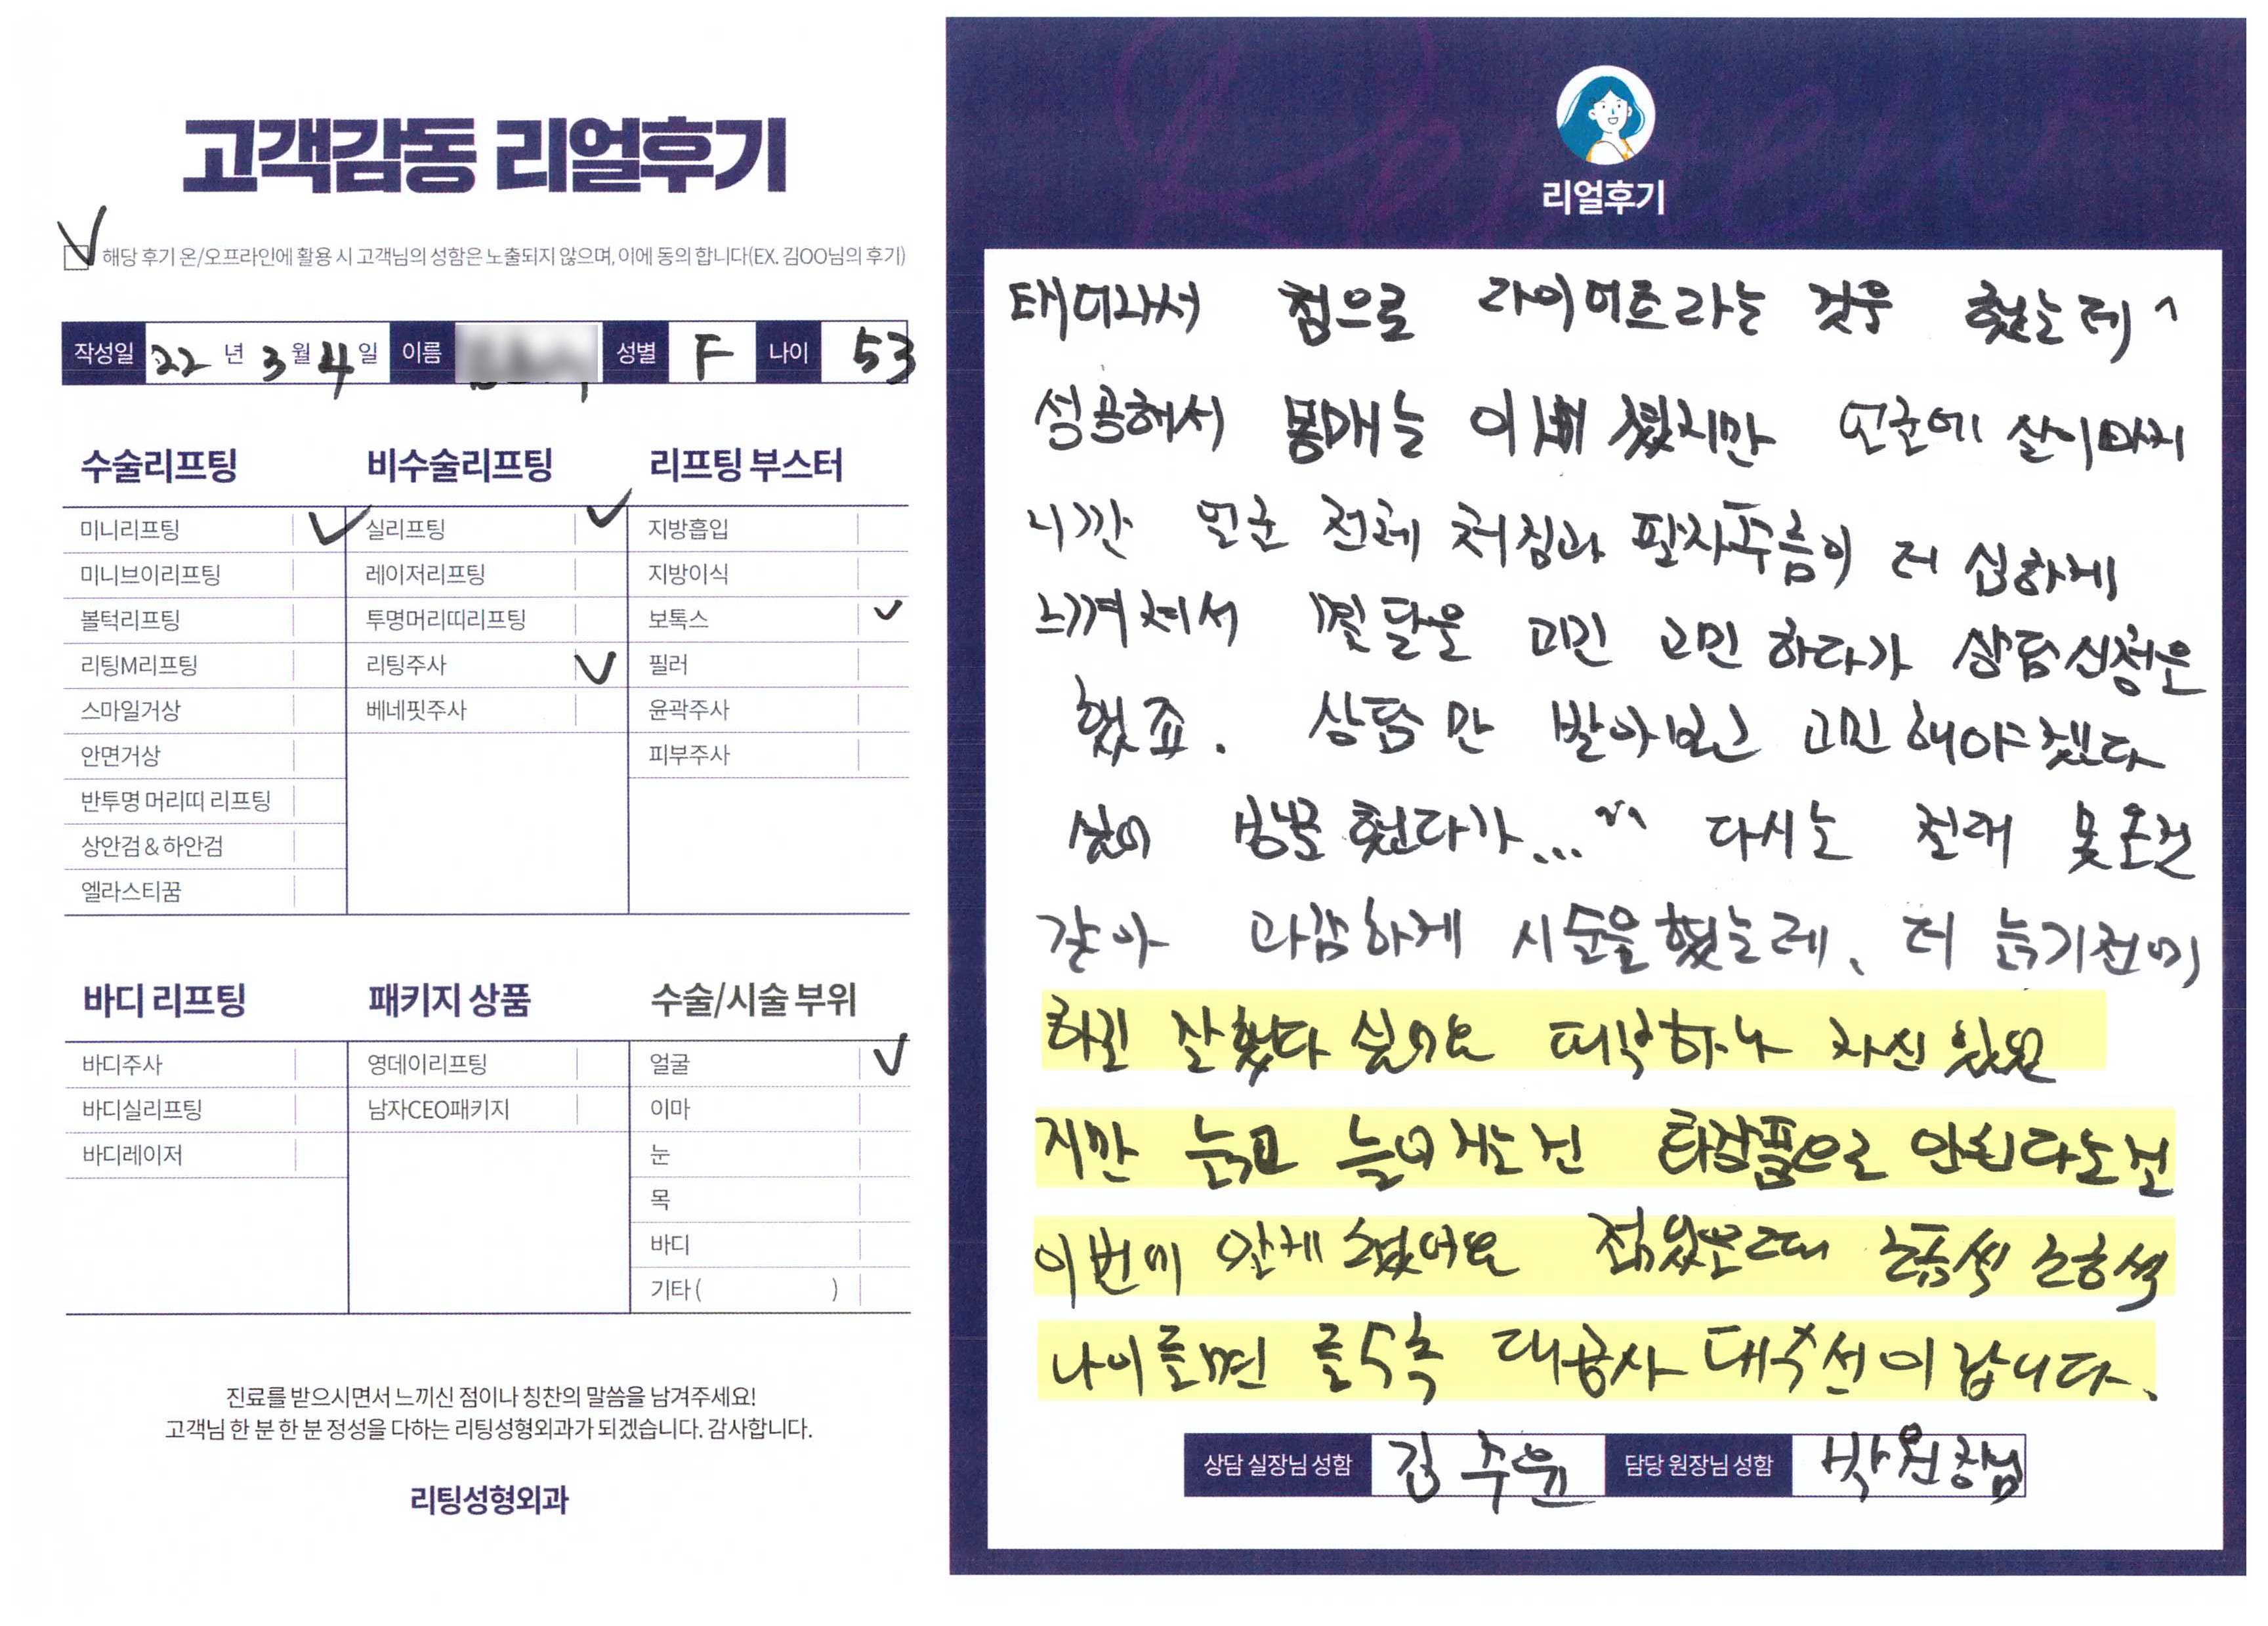 고객감동 리얼후기
해당 후기 온/오프라인에 활용 시 고객님의 성함은 노출되지 않으며, 이에 동의 합니다(EX. 김OO님의 후기)
작성일 22 년 3 월 4 일 이름 성별 F 나이 53
수술리프팅
미니리프팅
미니브이리프팅
볼턱리프팅
리팅M리프팅
스마일거상
안면거상
반투명 머리띠 리프팅
상안검 & 하안검
엘라스티꿈
비수술리프팅
실리프팅
레이저리프팅
투명머리띠리프팅
리팅주사
베네핏주사
리프팅 부스터
지방흡입
지방이식
보톡스
필러
윤곽주사
피부주사
바디 리프팅
바디주사
바디실리프팅
바디레이저
패키지 상품
영데이리프팅
남자CEO패키지
수술/시술 부위
얼굴
이마
눈
목
바디
기타 ( )
진료를 받으시면서 느끼신 점이나 칭찬의 말씀을 남겨주세요!
고객님 한 분 한 분 정성을 다하는 리팅성형외과가 되겠습니다. 감사합니다.
리팅성형외과
리얼후기
태어나서 첨으로 라이어트라는 것을 했는데
성공해서 몸매는 이뻐졌지만 얼굴에 살이 빠지
니깐 얼굴 전체 처짐과 팔자주름이 더 심하게
느껴져서 몇달을 고민 고민 하다가 상담신청을
했죠. 상담만 받아보고 고민해야겠다
싶어 방문했다가... 다시는 진래 못올것
같아 과감하게 시술을 했는데, 더 늙기전에
하길 잘했다 싶어요 피부하나 자신있었
지만 늙고 늘어지는건 화장품으로 안된다는걸
이번에 알게 됐어요 젊었을때 조금씩 조금씩
나이들면 들수록 대공사 대수선이랍니다.
상담 실장님 성함 김주윤 담당 원장님 성함 박원장님